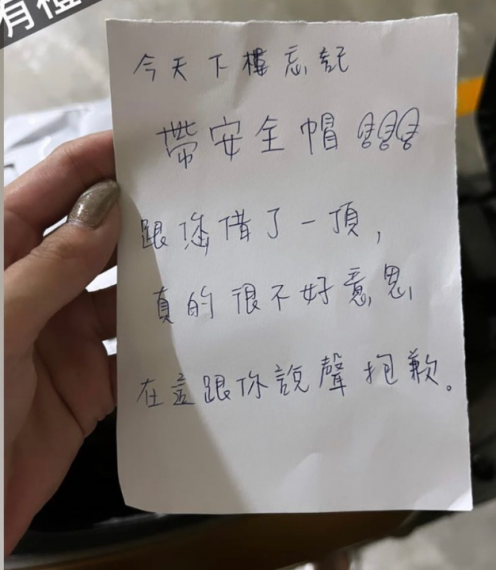 有橙
今天下樓忘記
帶安全帽
跟您借了一頂,
真的很不好意思
在這跟你說聲抱歉。